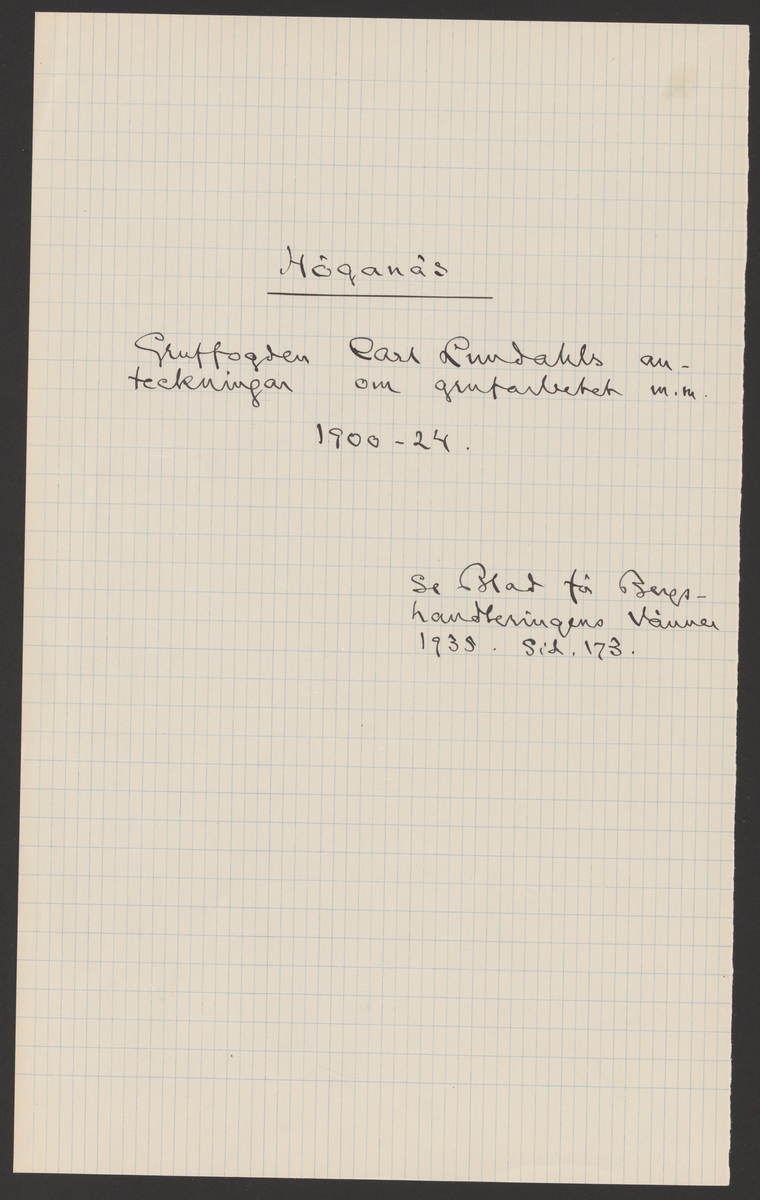 Höganäs
Gruffogden Carl Lundahls an-
teckningar om grufarbetet m.m.
1900-24.
Se Blad för Bergs-
handteringens Vänner
1938. Sid. 173.